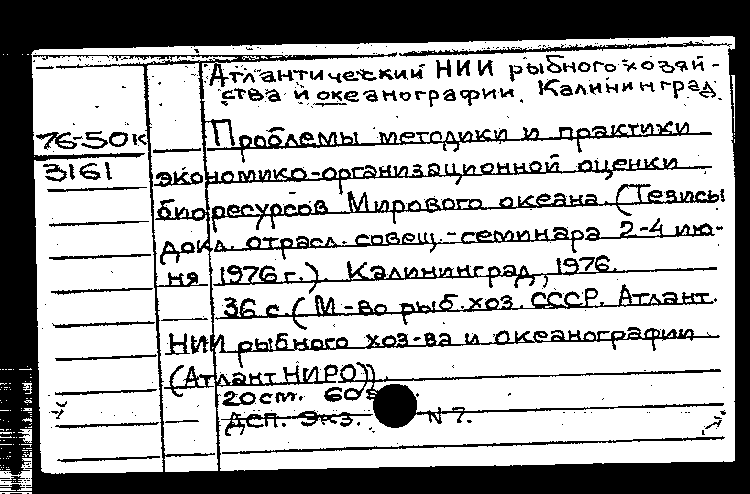 Атлантический НИИ рыбного хозяй-
ства и океанографии. Калининград
76-50к
3161
Проблемы методики и практики
экономико-организационной оценки
биоресурсов Мирового океана. (Тезисы
докл. отрасл. совещ.-семинара 2-4 ию-
ня 1976 г.). Калининград, 1976.
36 с. (М-во рыб. хоз. СССР. Атлант.
НИИ рыбного хоз-ва и океанографии
(АтлантНИРО)).
20 см. 60
ДСП. Экз. N 7.